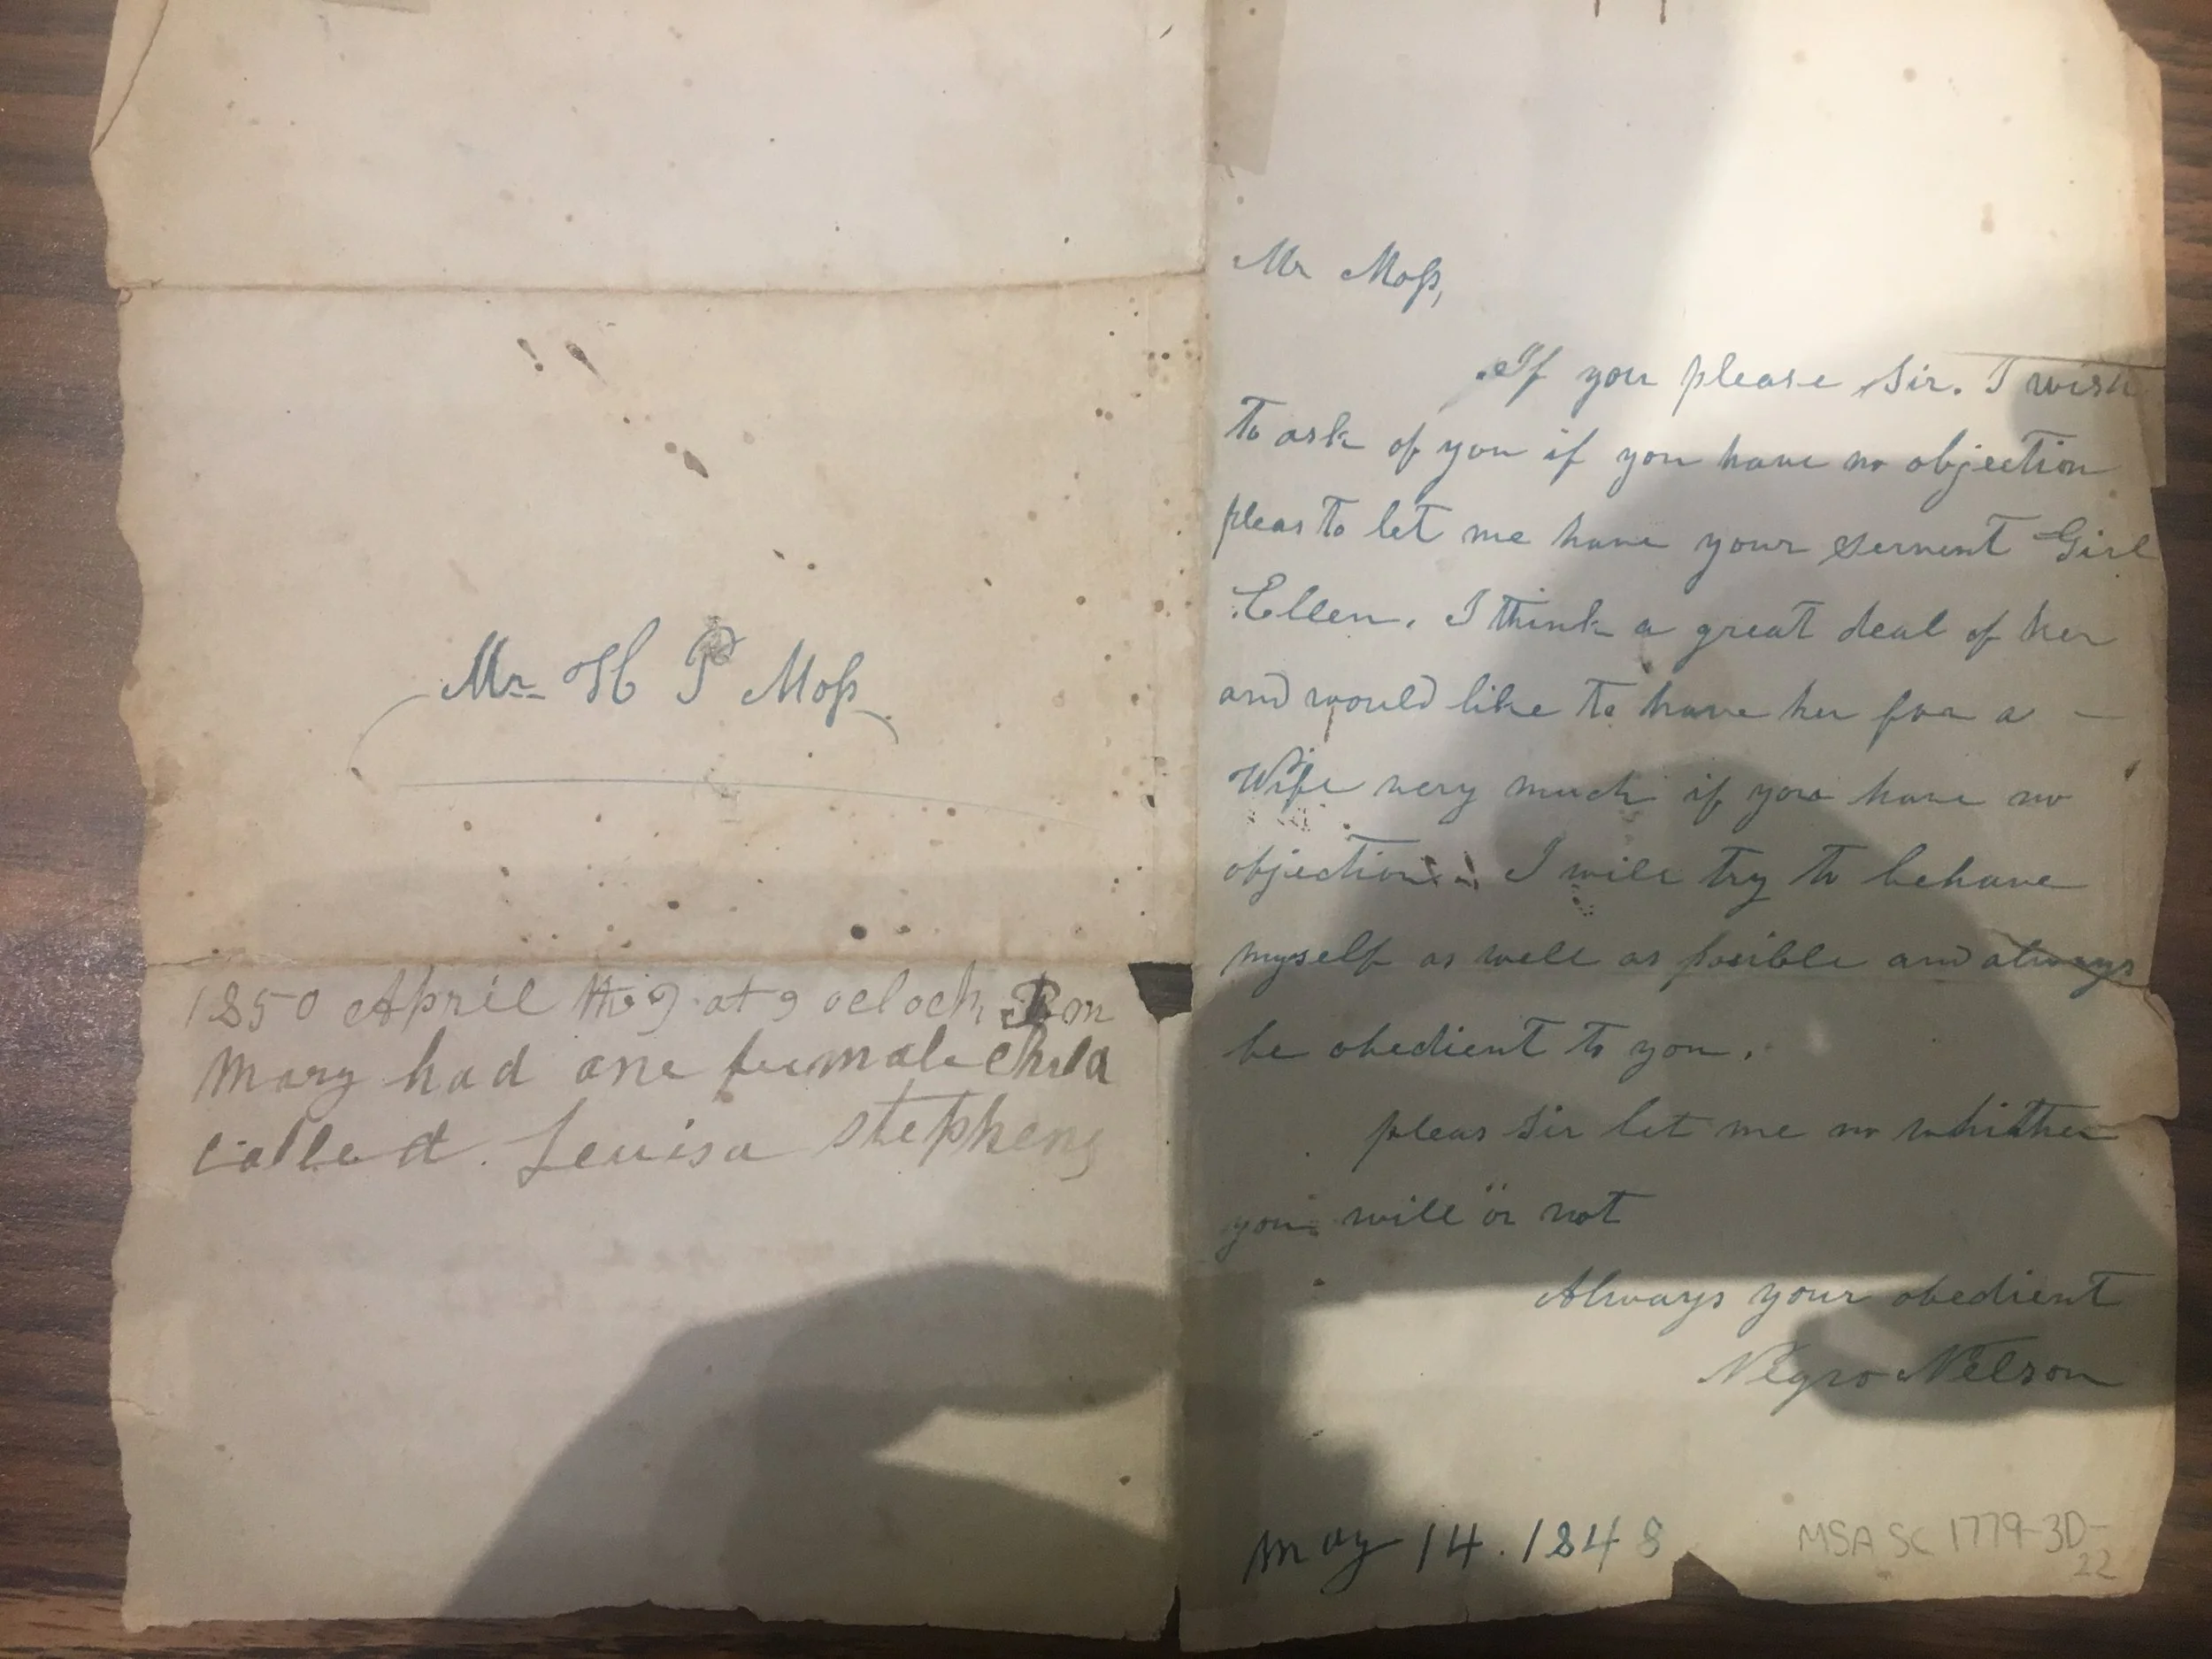 Mr H P Moſs
1850 April the 9 at 9 oclock Bon
Mary had one feemale child
called Leuisa stephens
Mr Moſs,
If you please Sir. I wish
to ask of you if you have no objection
pleas to let me have your servent Girl
Ellen. I think a great deal of her
and would like to have her for a –
Wife very much if you have no
objection. I will try to behave
myself as well as posible and always
be obedient to you.
pleas Sir let me no whither
you will or not
Always your obedient
Negro Nelson
May 14. 1848
MSA SC 1779-3D-
22